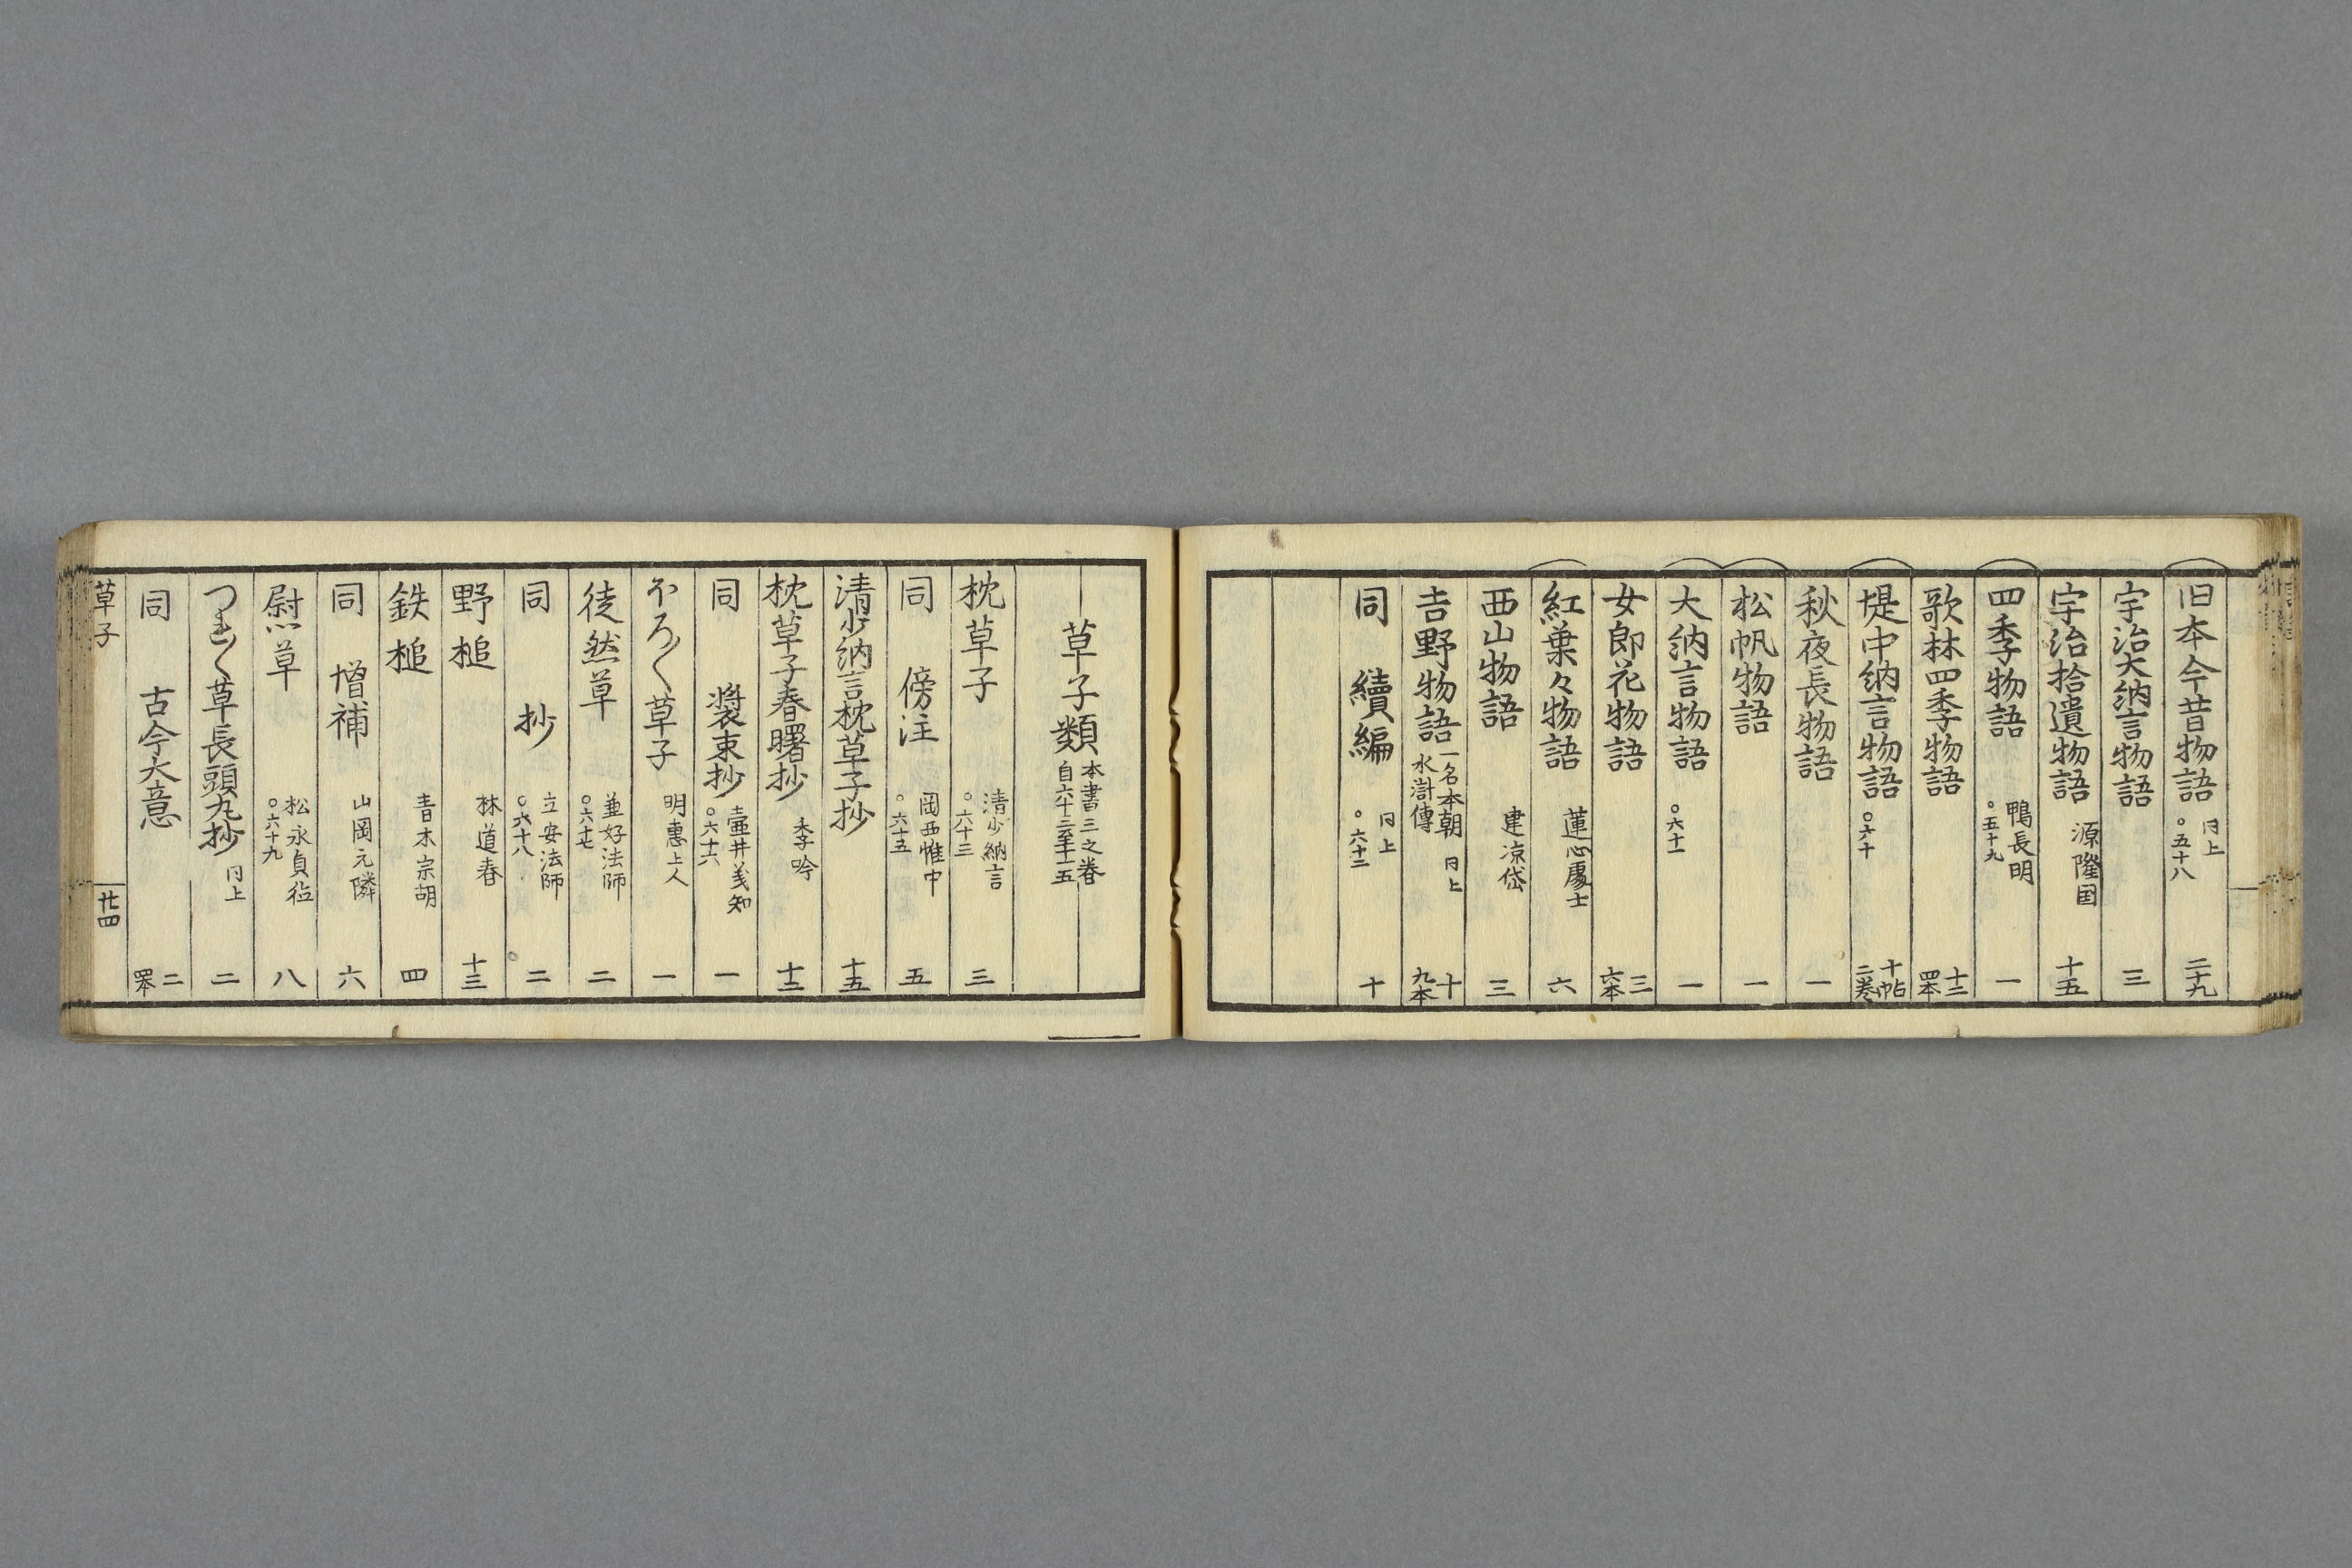 旧本今昔物語 同上 ○五十八 二十九
宇治大納言物語 三
宇治拾遺物語 源隆国 十五
四季物語 鴨長明 ○五十九 一
歌林四季物語 十二 四本
堤中納言物語 ○六十 十帖 二巻
秋夜長物語 一
松帆物語 一
大納言物語 ○六十一 一
女郎花物語 三 六本
紅葉々物語 蓮心處士 六
西山物語 建凉岱 三
吉野物語 一名本朝水滸傳 同上 十 九本
同 續編 同上 ○六十二 十
草子類 本書三之巻 自六十三至七十五
枕草子 清少納言 ○六十三 三
同 傍注 岡西惟中 ○六十五 五
清少納言枕草子抄 十五
枕草子春曙抄 季吟 十二
同 裝束抄 壷井義知 ○六十六 一
ホろ〳〵草子 明惠上人 一
徒然草 兼好法師 ○六十七 二
同 抄 立安法師 ○六十八 二
野槌 林道春 十三
鉄槌 青木宗胡 四
同 増補 山岡元隣 六
慰草 松永貞徳 ○六十九 八
つれ〳〵草長頭丸抄 同上 二
同 古今大意 二 四本
草子 廿四